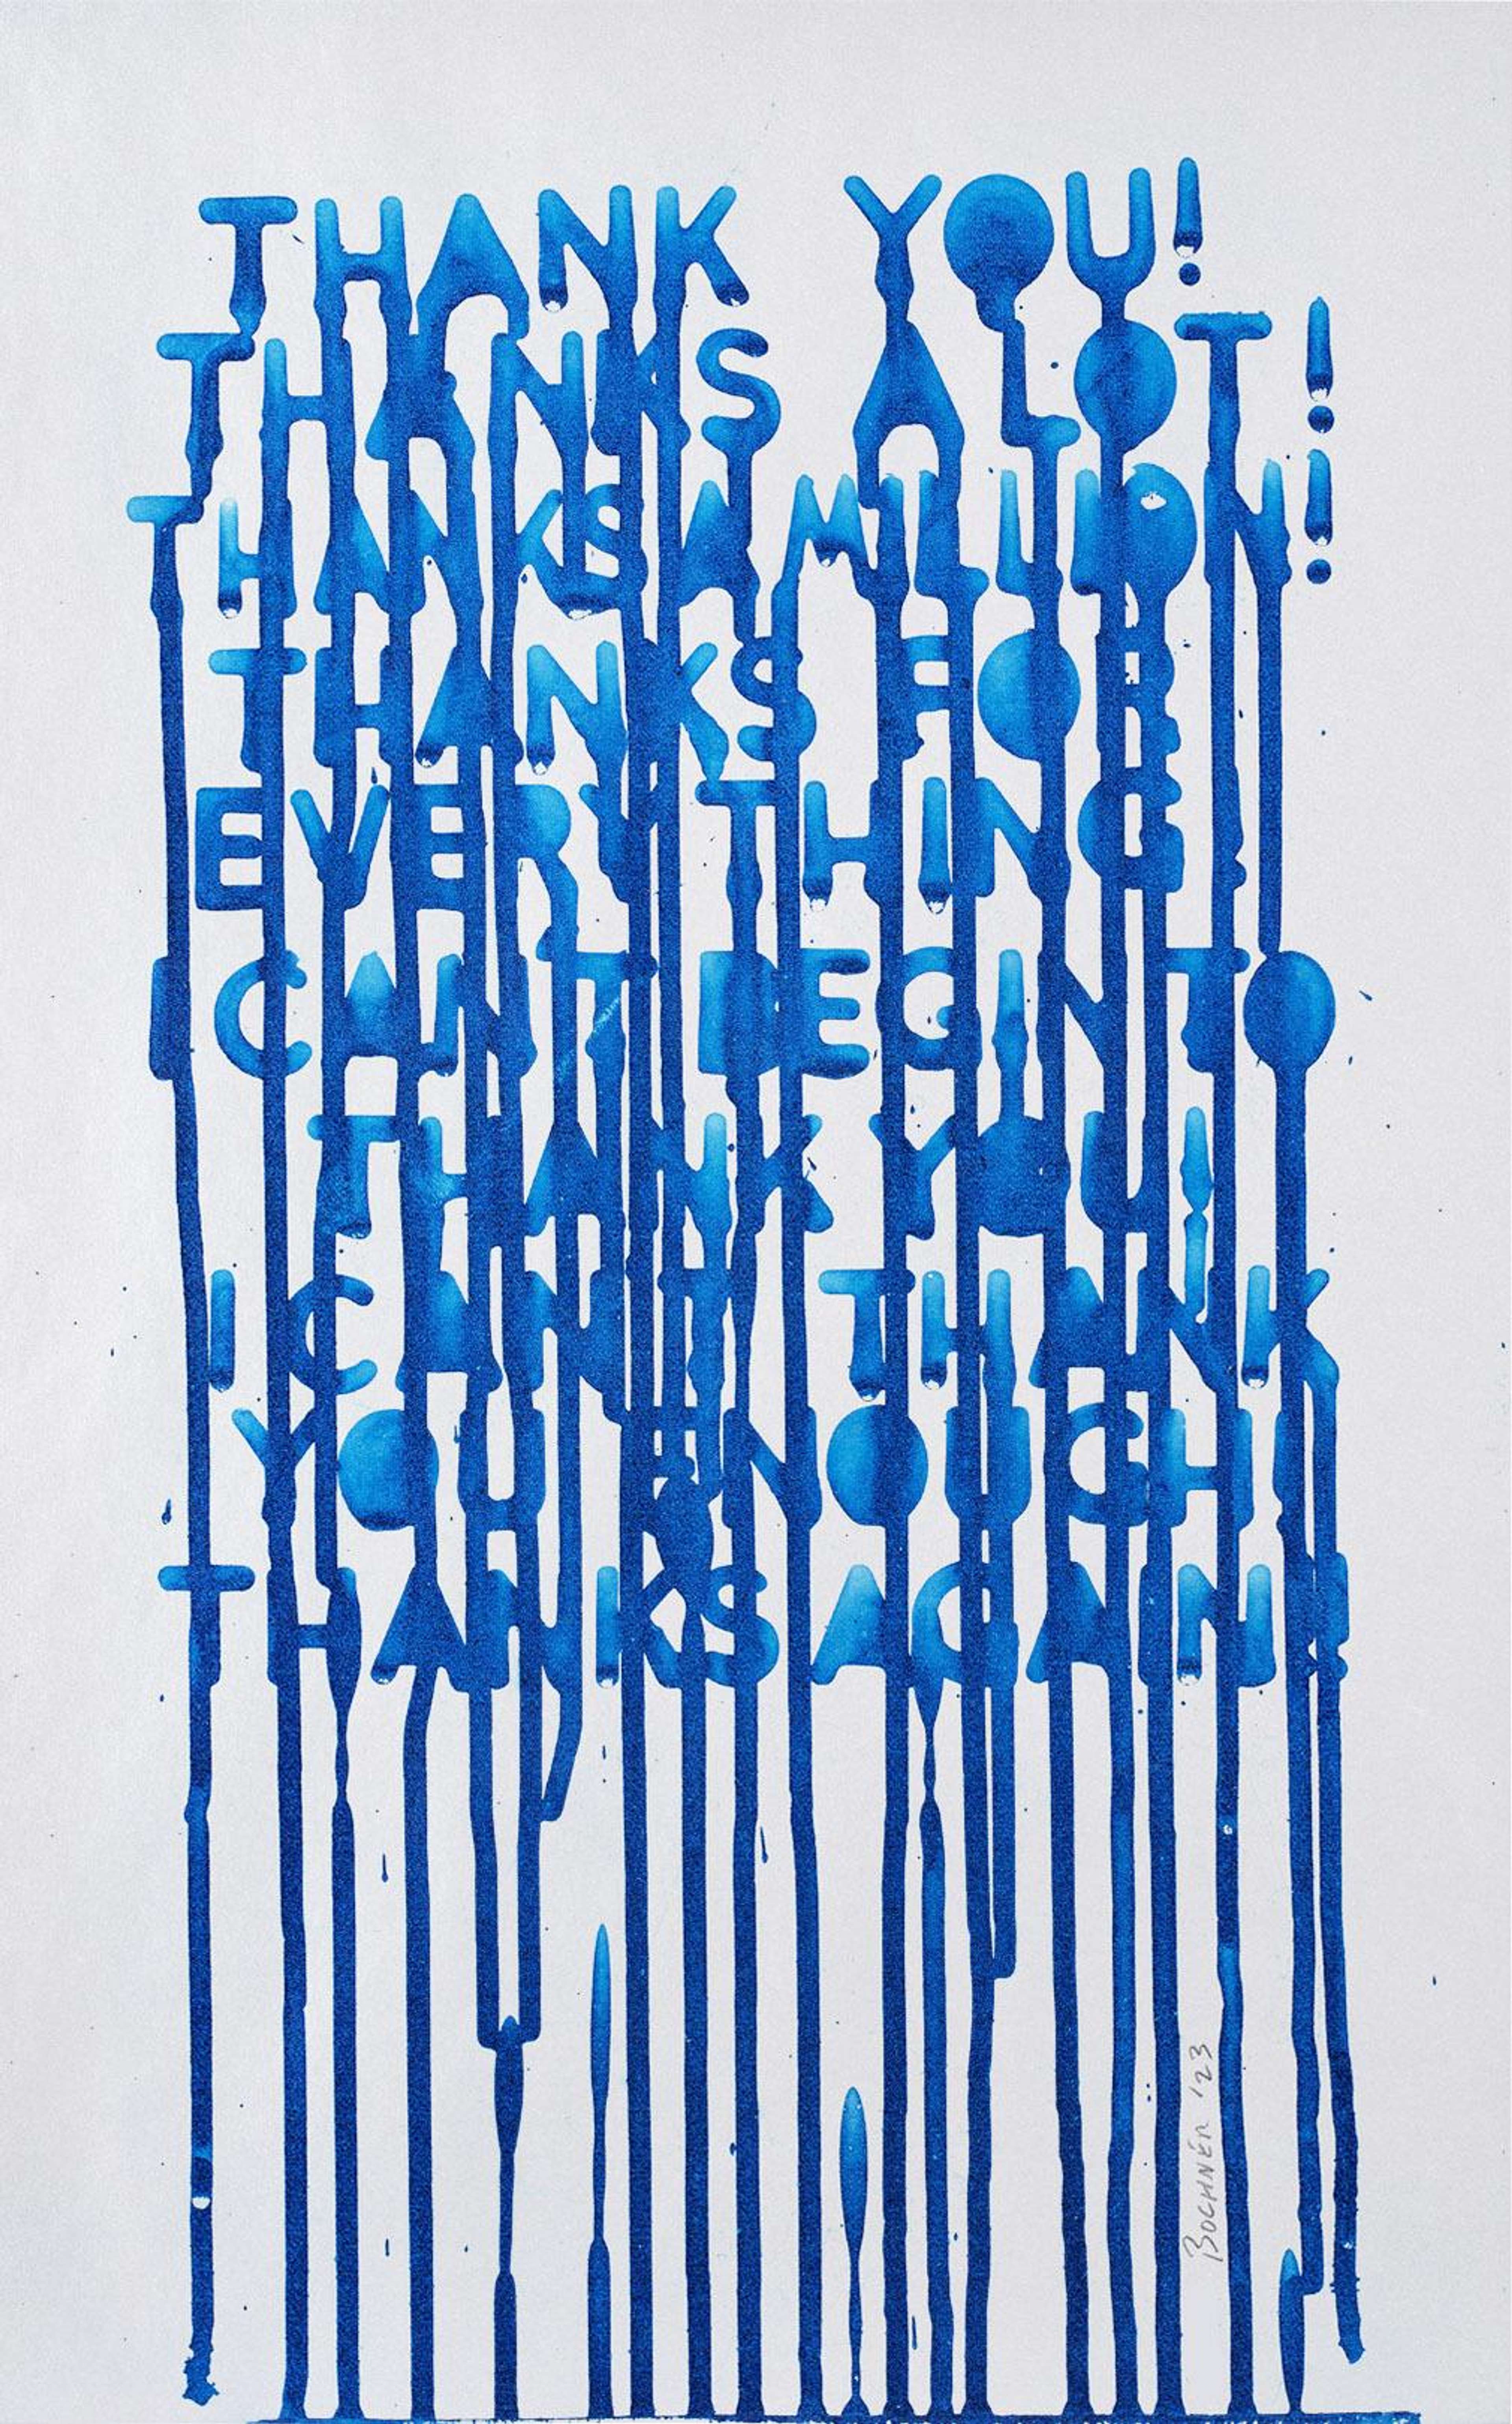 THANK YOU!
THANKS A LOT!
THANKS A MILLION!
THANKS FOR
EVERYTHING!
I CAN'T BEGIN TO
THANK YOU!
I CAN'T THANK
YOU ENOUGH!
THANKS AGAIN!
BOCHNER '23